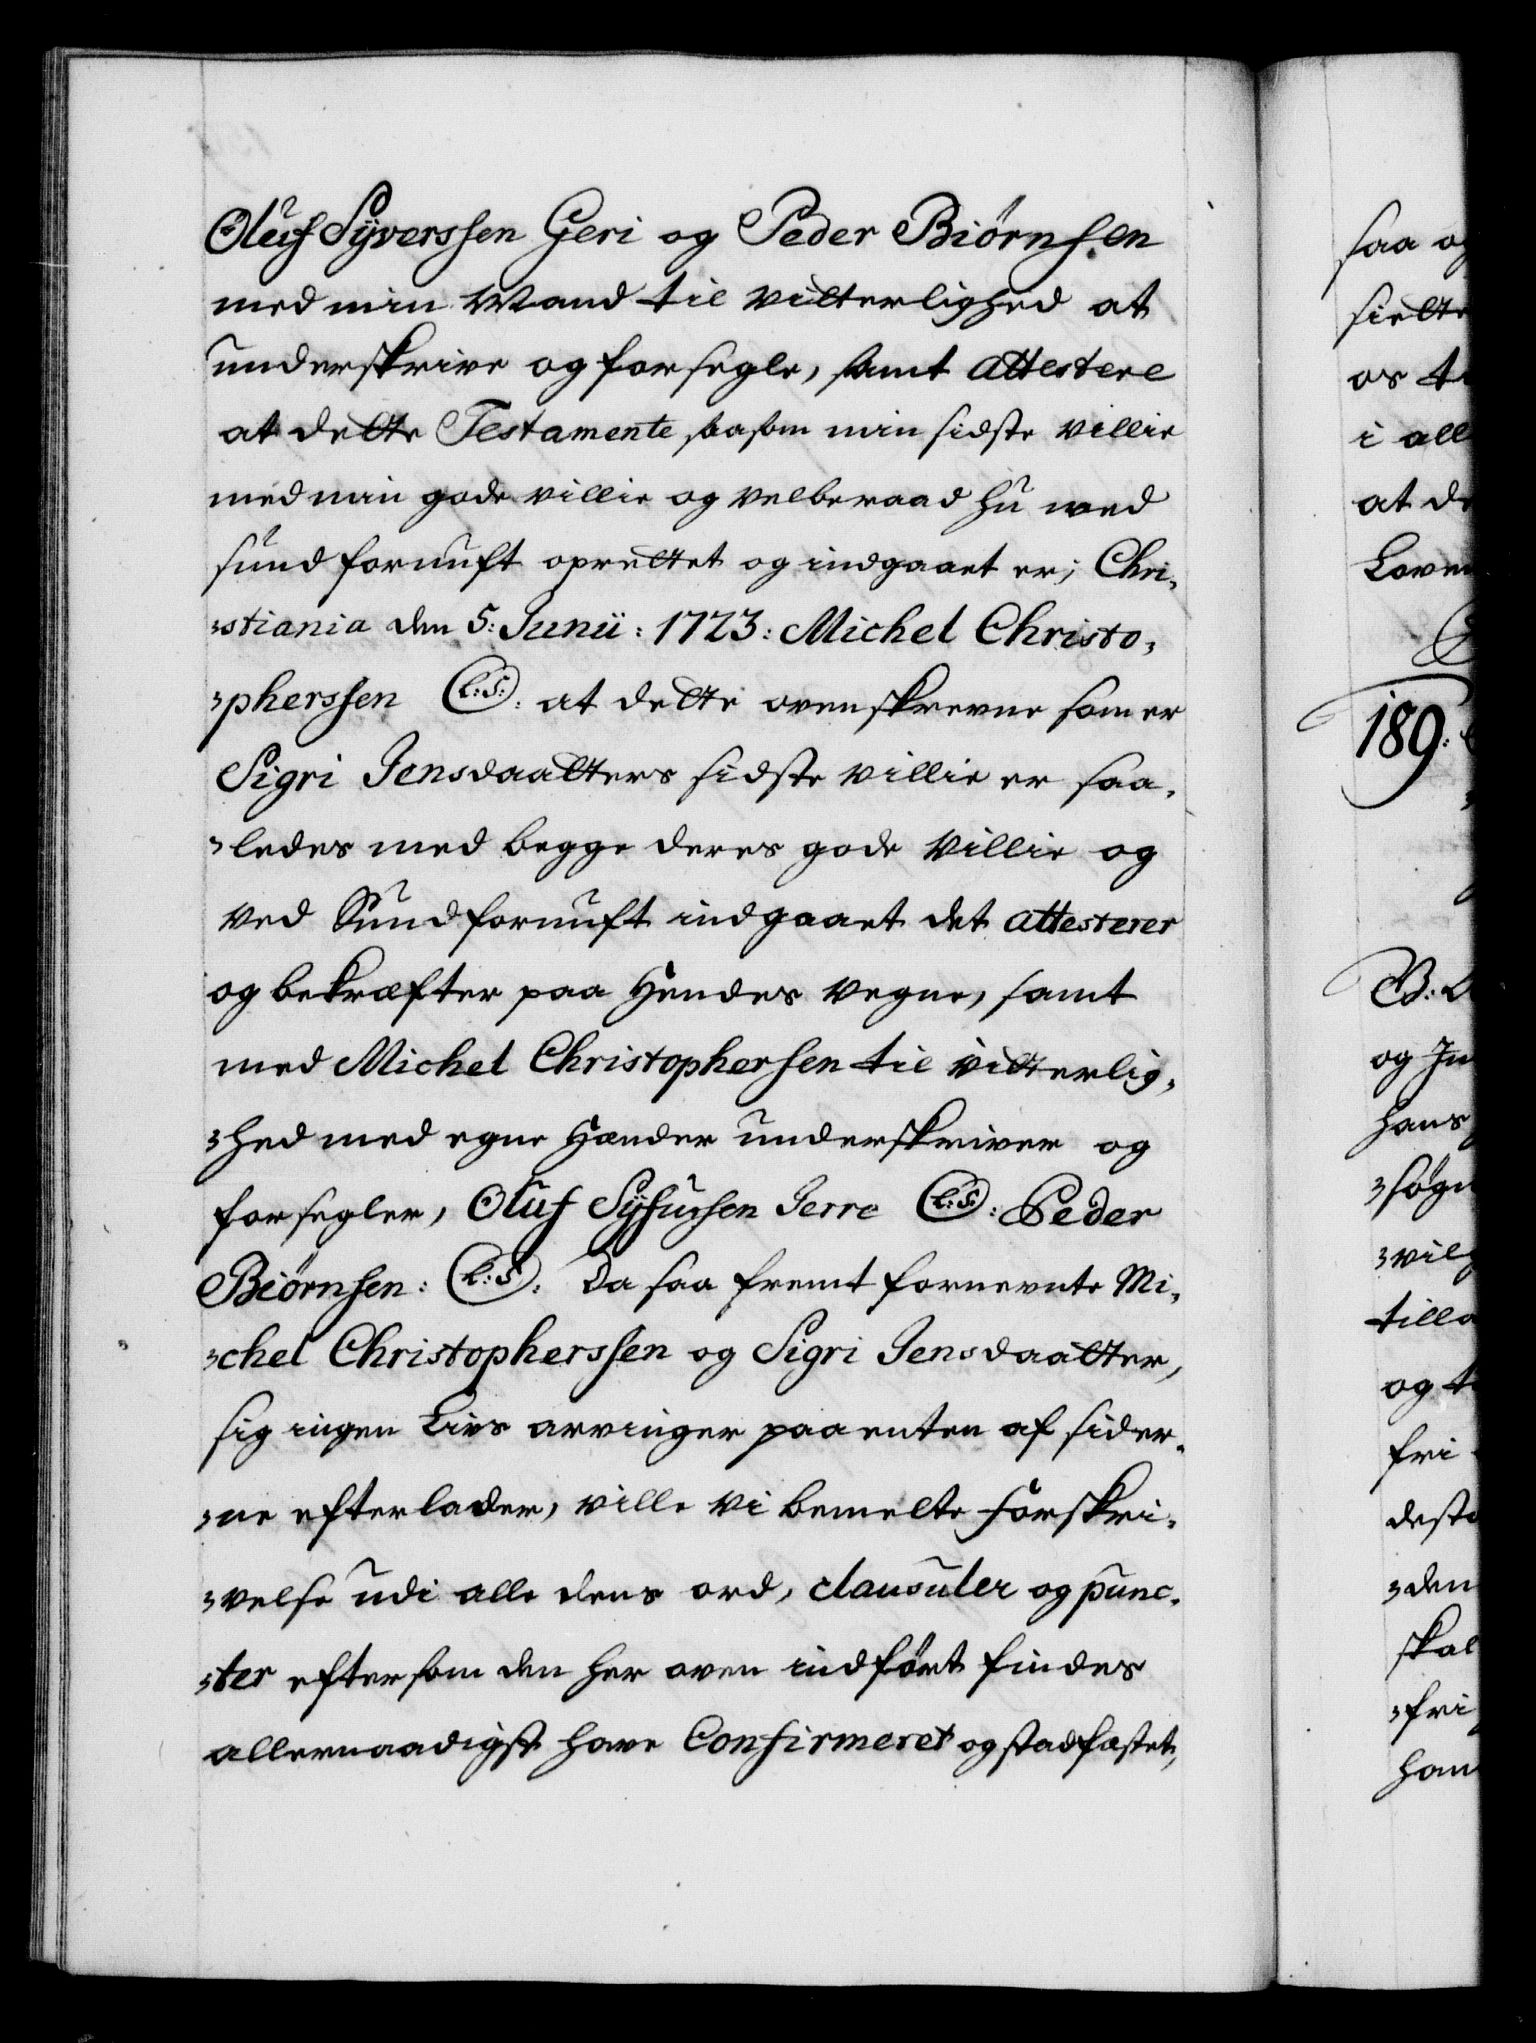 Oluf Syverssen Geri og Peder Biørnsen
med min Mand til vitterlighed at
underskrive og forsegle, samt attestere
at dette Testamente saasom min sidste villie
med min gode villie og velberaad hu med
sund fornuft oprettet og indgaaet er; Chri-
-stiania den 5: Junii: 1723: Michel Christo-
-pherssen (L:S:): at dette ovenskrevne som er
Sigri Jensdaatters sidste villie er saa-
-ledes med begge deres gode villie og
ved Sund fornuft indgaaet det attesterer
og bekræfter paa Hendes vegne, samt
med Michel Christophersen til vitterlig-
-hed med egne Hænder underskriver og
forsegler, Oluf Syfuersen Jerre (L:S:): Peder
Biørnsen: (L:S): Da saa fremt fornevnte Mi-
-chel Christopherssen og Sigri Jensdaatter,
sig ingen Livs arvinger paa enten af sider-
-ne efterlader, ville vi bemelte forskri-
-velse udi alle dens ord, clausuler og punc-
-ter eftersom den her oven indført findes
allernaadigst have Confirmeret og stadfæstet,
saa og
at de
i all
189:
og
hans
fri
skal
-den